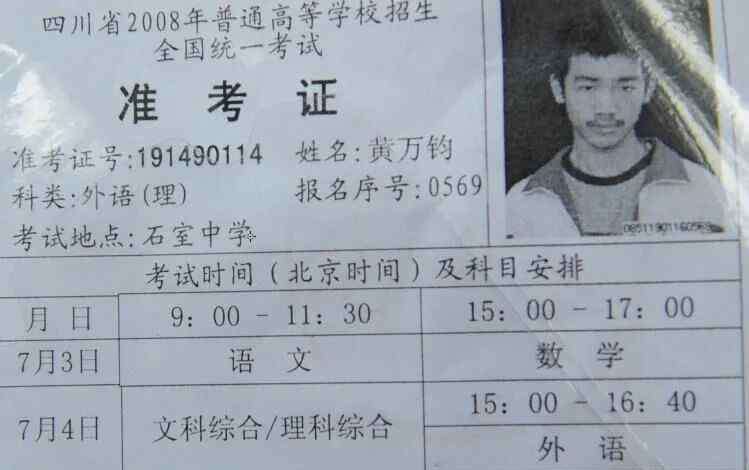 四川省2008年普通高等学校招生
全国统一考试
准 考 证
准考证号:191490114 姓名:黄万钧
科类:外语(理) 报名序号:0569
考试地点:石室中学
08511901160569
考试时间(北京时间)及科目安排
月 日 9:00 - 11:30 15:00 - 17:00
7月3日 语 文 数 学
7月4日 文科综合/理科综合 15:00 - 16:40
外 语